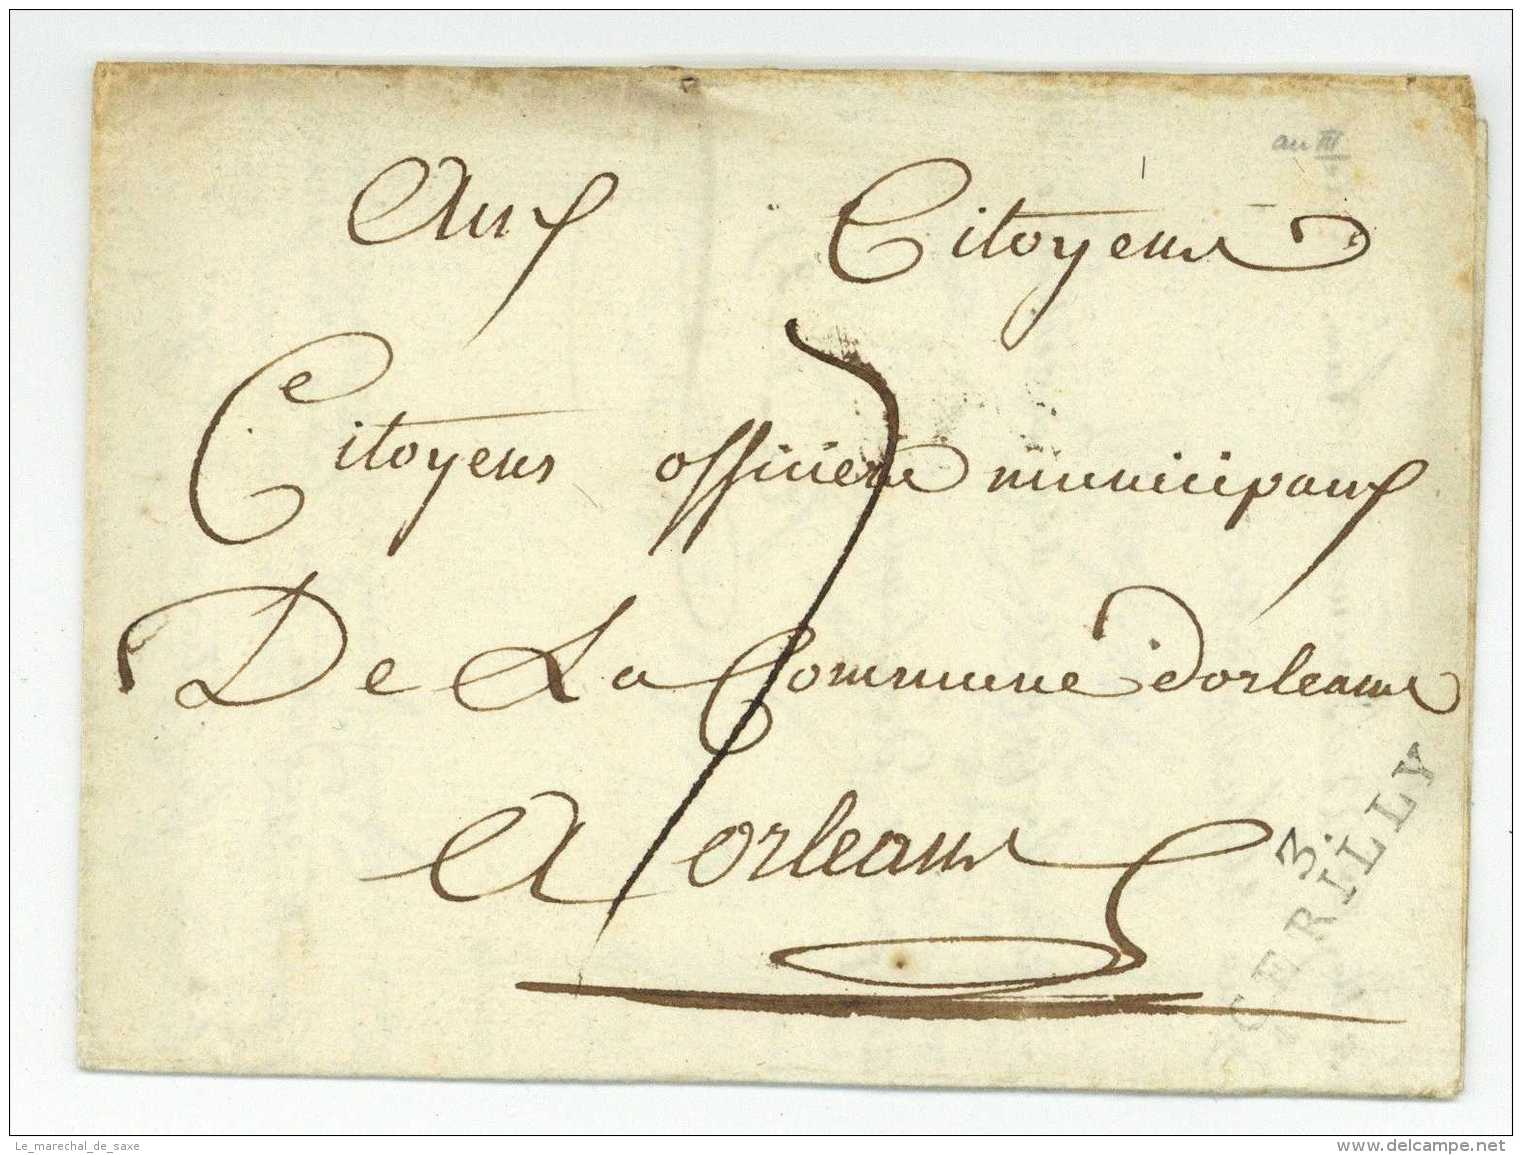 an III
Aux Citoyens
Citoyens officiers municipaux
De La Commune dorleans
A orleans
7
3.
CERILLY
Le_marechal_de_saxe
www.delcampe.net